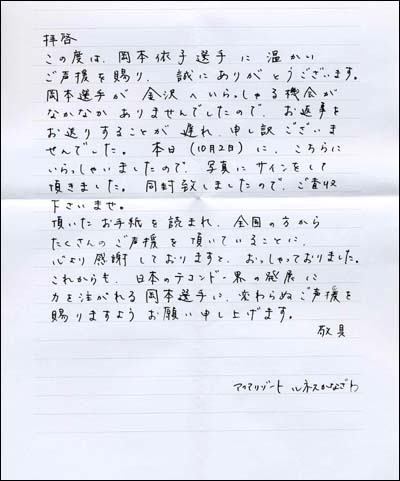 拝啓
この度は、岡本依子選手に温かい
ご声援を賜り、誠にありがとうございます。
岡本選手が金沢へいらっしゃる機会が
なかなかありませんでしたので、お返事を
お送りすることが遅れ、申し訳ございま
せんでした。本日(10月2日)に、こちらに
いらっしゃいましたので、写真にサインをして
頂きました。同封致しましたので、ご査収
下さいませ。
頂いたお手紙を読まれ、全国の方から
たくさんのご声援を頂いていることに、
心より感謝しておりますと、おっしゃっておりました。
これからも、日本のテコンドー界の発展に
力を注がれる岡本選手に、変わらぬご声援を
賜りますようお願い申し上げます。
敬具
アクアリゾート ルネスかなざわ